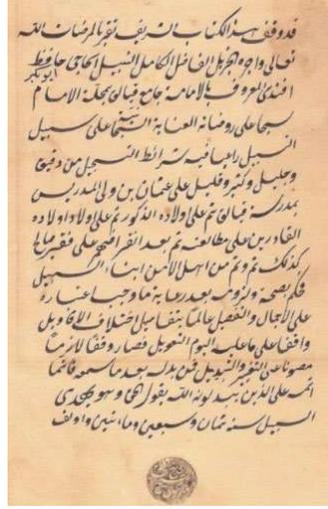 قد وقف هذا الكتاب الشريف تقربا لمرضات الله
تعالى واجره الجزيل الفاضل الكامل النبيل الحاجي حافظ ابو بكر
افندي المعروف بالامامة جامع قبالي بمحلة الامام
سبحا على روضانه العناية السبحا على سبيل
السبيل راعيا فيه شرائط التسجيل من دقيق
وجليل وكثير وقليل على عثمان بن ولي المدرس
بمدرسة قبالي ثم على اولاده الذكور ثم على اولاد اولاده
القادرين على مطالعته ثم بعد انقراضهم على فقير صالح
كذلك ثم وثم من اهل الامن ابناء السبيل
فحكم بصحته ولزومه بعد رعاية ما وجب اعتباره
على الاجمال والتفصيل عالما بتفاصيل اختلاف الاقاويل
واقفا على ما عليه اليوم التعويل فصار وقفا لازما
مصونا عن التغيير والتبديل فمن بدله بعد ما سمعه فانما
اثمه على الذين يبدلونه الله يقول الحق وهو يهدي
السبيل سنة ثمان وسبعين ومائتين والف